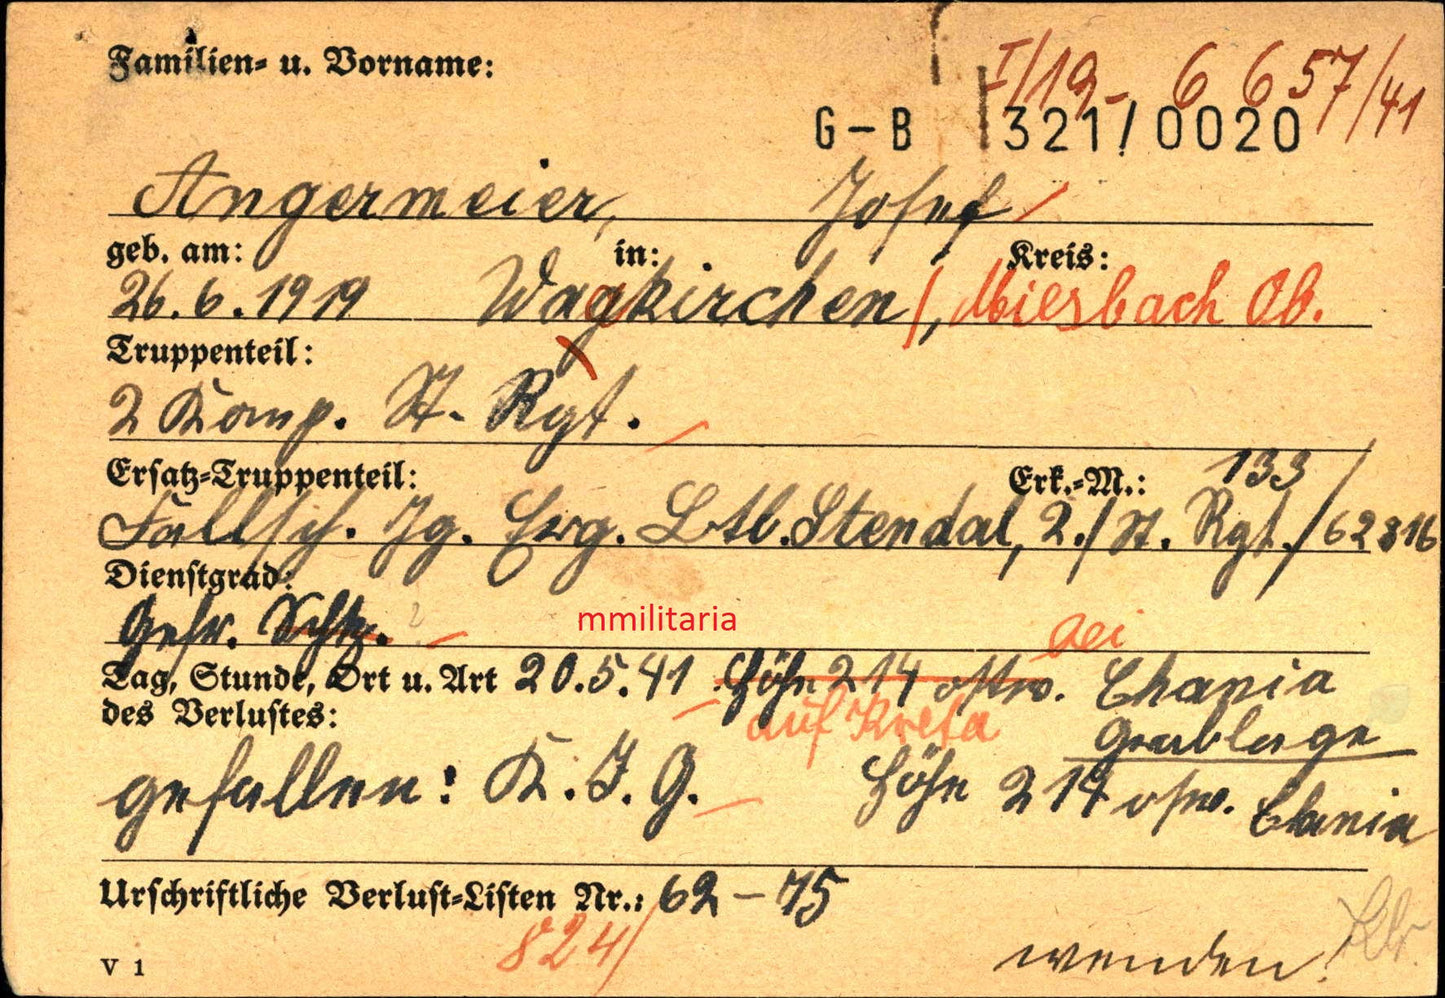 Familien- u. Vorname:
I/19- 6 657/41
G-B 321/0020
Angermeier, Josef
geb. am: in: Kreis:
26.6.1919 Wagkirchen, Miesbach Ob.
Truppenteil:
2 Komp. St. Rgt.
Ersatz-Truppenteil: Erk.-M.: 133
Fallsch. Jg. Erg. Btl. Stendal, 2./St. Rgt./62816
Dienstgrad:
Gefr. Schtz.
mmilitaria
bei
Tag, Stunde, Ort u. Art 20.5.41 Höhe 214 ostw. Chania
des Verlustes: auf Kreta Grablage
gefallen: K.J.G. Höhe 214 ostw. Chania
Urschriftliche Verlust-Listen Nr.: 62-75
824/
V 1 wenden!